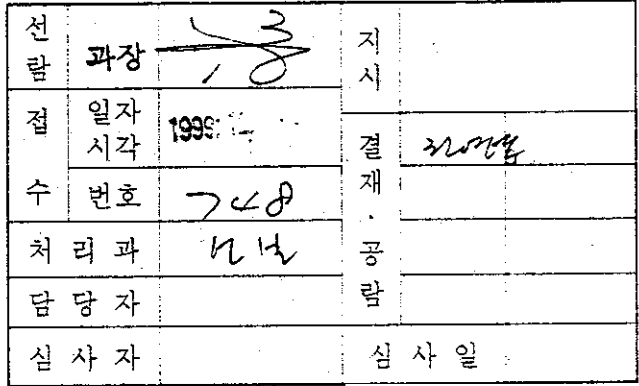 선람 과장 지시
접수 일자 시각 1999.
번호 748
결재·공람
처리과
담당자
심사자 심사일